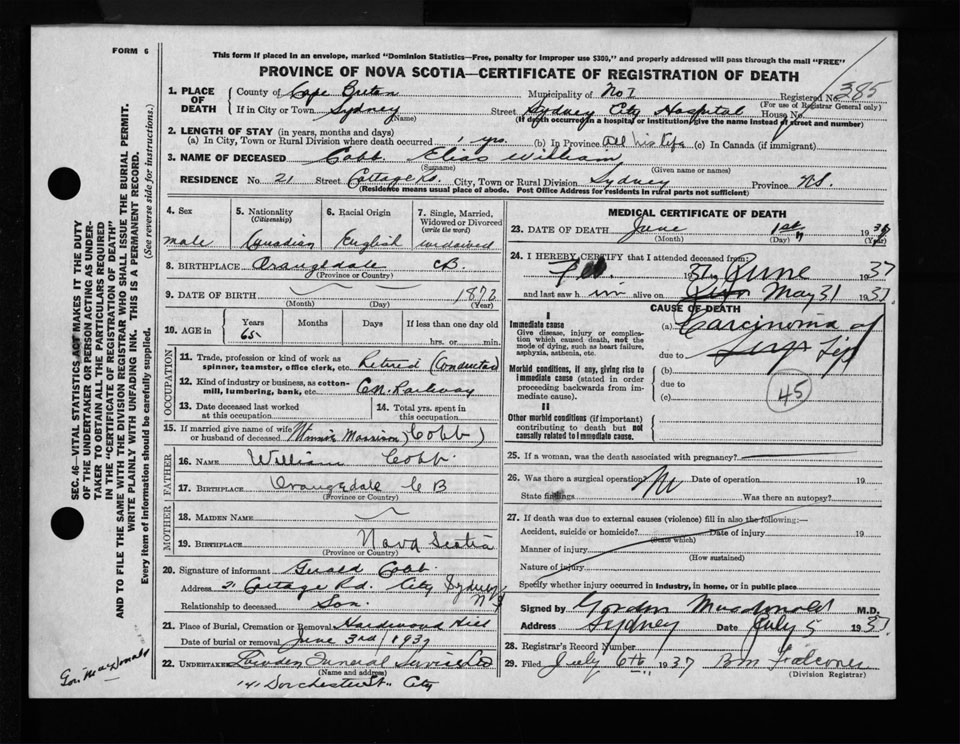 FORM 6
This form if placed in an envelope, marked "Dominion Statistics—Free, penalty for improper use $300," and properly addressed will pass through the mail "FREE"
PROVINCE OF NOVA SCOTIA—CERTIFICATE OF REGISTRATION OF DEATH
1. PLACE OF DEATH
County of Cape Breton Municipality of No 1 Registered No. 385
(For use of Registrar General only)
If in City or Town Sydney Street Sydney City Hospital House No.
(Name) (If death occurred in a hospital or institution, give the name instead of street and number)
2. LENGTH OF STAY (in years, months and days)
(a) In City, Town or Rural Division where death occurred 1 yrs. (b) In Province All his life (c) In Canada (if immigrant)
3. NAME OF DECEASED Cobb Elias William
(Surname) (Given name or names)
RESIDENCE No. 21 Street Cottage Rd. City, Town or Rural Division Sydney Province N.S.
(Residence means usual place of abode. Post Office Address for residents in rural parts not sufficient)
4. Sex
male
5. Nationality
(Citizenship)
Canadian
6. Racial Origin
English
7. Single, Married, Widowed or Divorced
(write the word)
widowed
8. BIRTHPLACE Orangedale CB
(Province or Country)
9. DATE OF BIRTH 1872
(Month) (Day) (Year)
10. AGE in Years Months Days If less than one day old
65 hrs. or min.
OCCUPATION
11. Trade, profession or kind of work as spinner, teamster, office clerk, etc. Retired (Conductor)
12. Kind of industry or business, as cotton-mill, lumbering, bank, etc. C.N. Railway
13. Date deceased last worked at this occupation
14. Total yrs. spent in this occupation
15. If married give name of wife or husband of deceased Morrison (Cobb)
FATHER
16. NAME William Cobb
17. BIRTHPLACE Orangedale C B
(Province or Country)
MOTHER
18. MAIDEN NAME
19. BIRTHPLACE Nova Scotia
(Province or Country)
20. Signature of informant Gerald Cobb
Address 21 Cottage Rd. City Sydney N S
Relationship to deceased Son.
21. Place of Burial, Cremation or Removal Hardwood Hill
Date of burial or removal June 3rd 1937
22. Undertaker Funeral Service Ltd
(Name and address)
141 Dorchester St. City
MEDICAL CERTIFICATE OF DEATH
23. DATE OF DEATH June 1st 1937
(Month) (Day) (Year)
24. I HEREBY CERTIFY that I attended deceased from:
Feb 1937 June 1937
and last saw h im alive on May 31 1937
CAUSE OF DEATH
I
Immediate cause
Give disease, injury or complication which caused death, not the mode of dying, such as heart failure, asphyxia, asthenia, etc.
(a) Carcinoma of
due to Lip
Morbid conditions, if any, giving rise to immediate cause (stated in order proceeding backwards from immediate cause).
(b)
due to
(c)
45
II
Other morbid conditions (if important) contributing to death but not causally related to immediate cause.
25. If a woman, was the death associated with pregnancy?
26. Was there a surgical operation? No Date of operation 19
State findings Was there an autopsy?
27. If death was due to external causes (violence) fill in also the following:—
Accident, suicide or homicide? Date of injury 19
(State which)
Manner of injury
(How sustained)
Nature of injury
Specify whether injury occurred in industry, in home, or in public place
Signed by Gordon Macdonald M.D.
Address Sydney Date July 5 1937
28. Registrar's Record Number
29. Filed July 6th 1937 B M Falconer
(Division Registrar)
SEC. 46—VITAL STATISTICS ACT MAKES IT THE DUTY
OF THE UNDERTAKER OR PERSON ACTING AS UNDER-
TAKER TO OBTAIN ALL THE PARTICULARS REQUIRED
IN THE "CERTIFICATE OF REGISTRATION OF DEATH"
AND TO FILE THE SAME WITH THE DIVISION REGISTRAR WHO SHALL ISSUE THE BURIAL PERMIT.
WRITE PLAINLY WITH UNFADING INK. THIS IS A PERMANENT RECORD.
Every item of information should be carefully supplied. (See reverse side for instructions.)